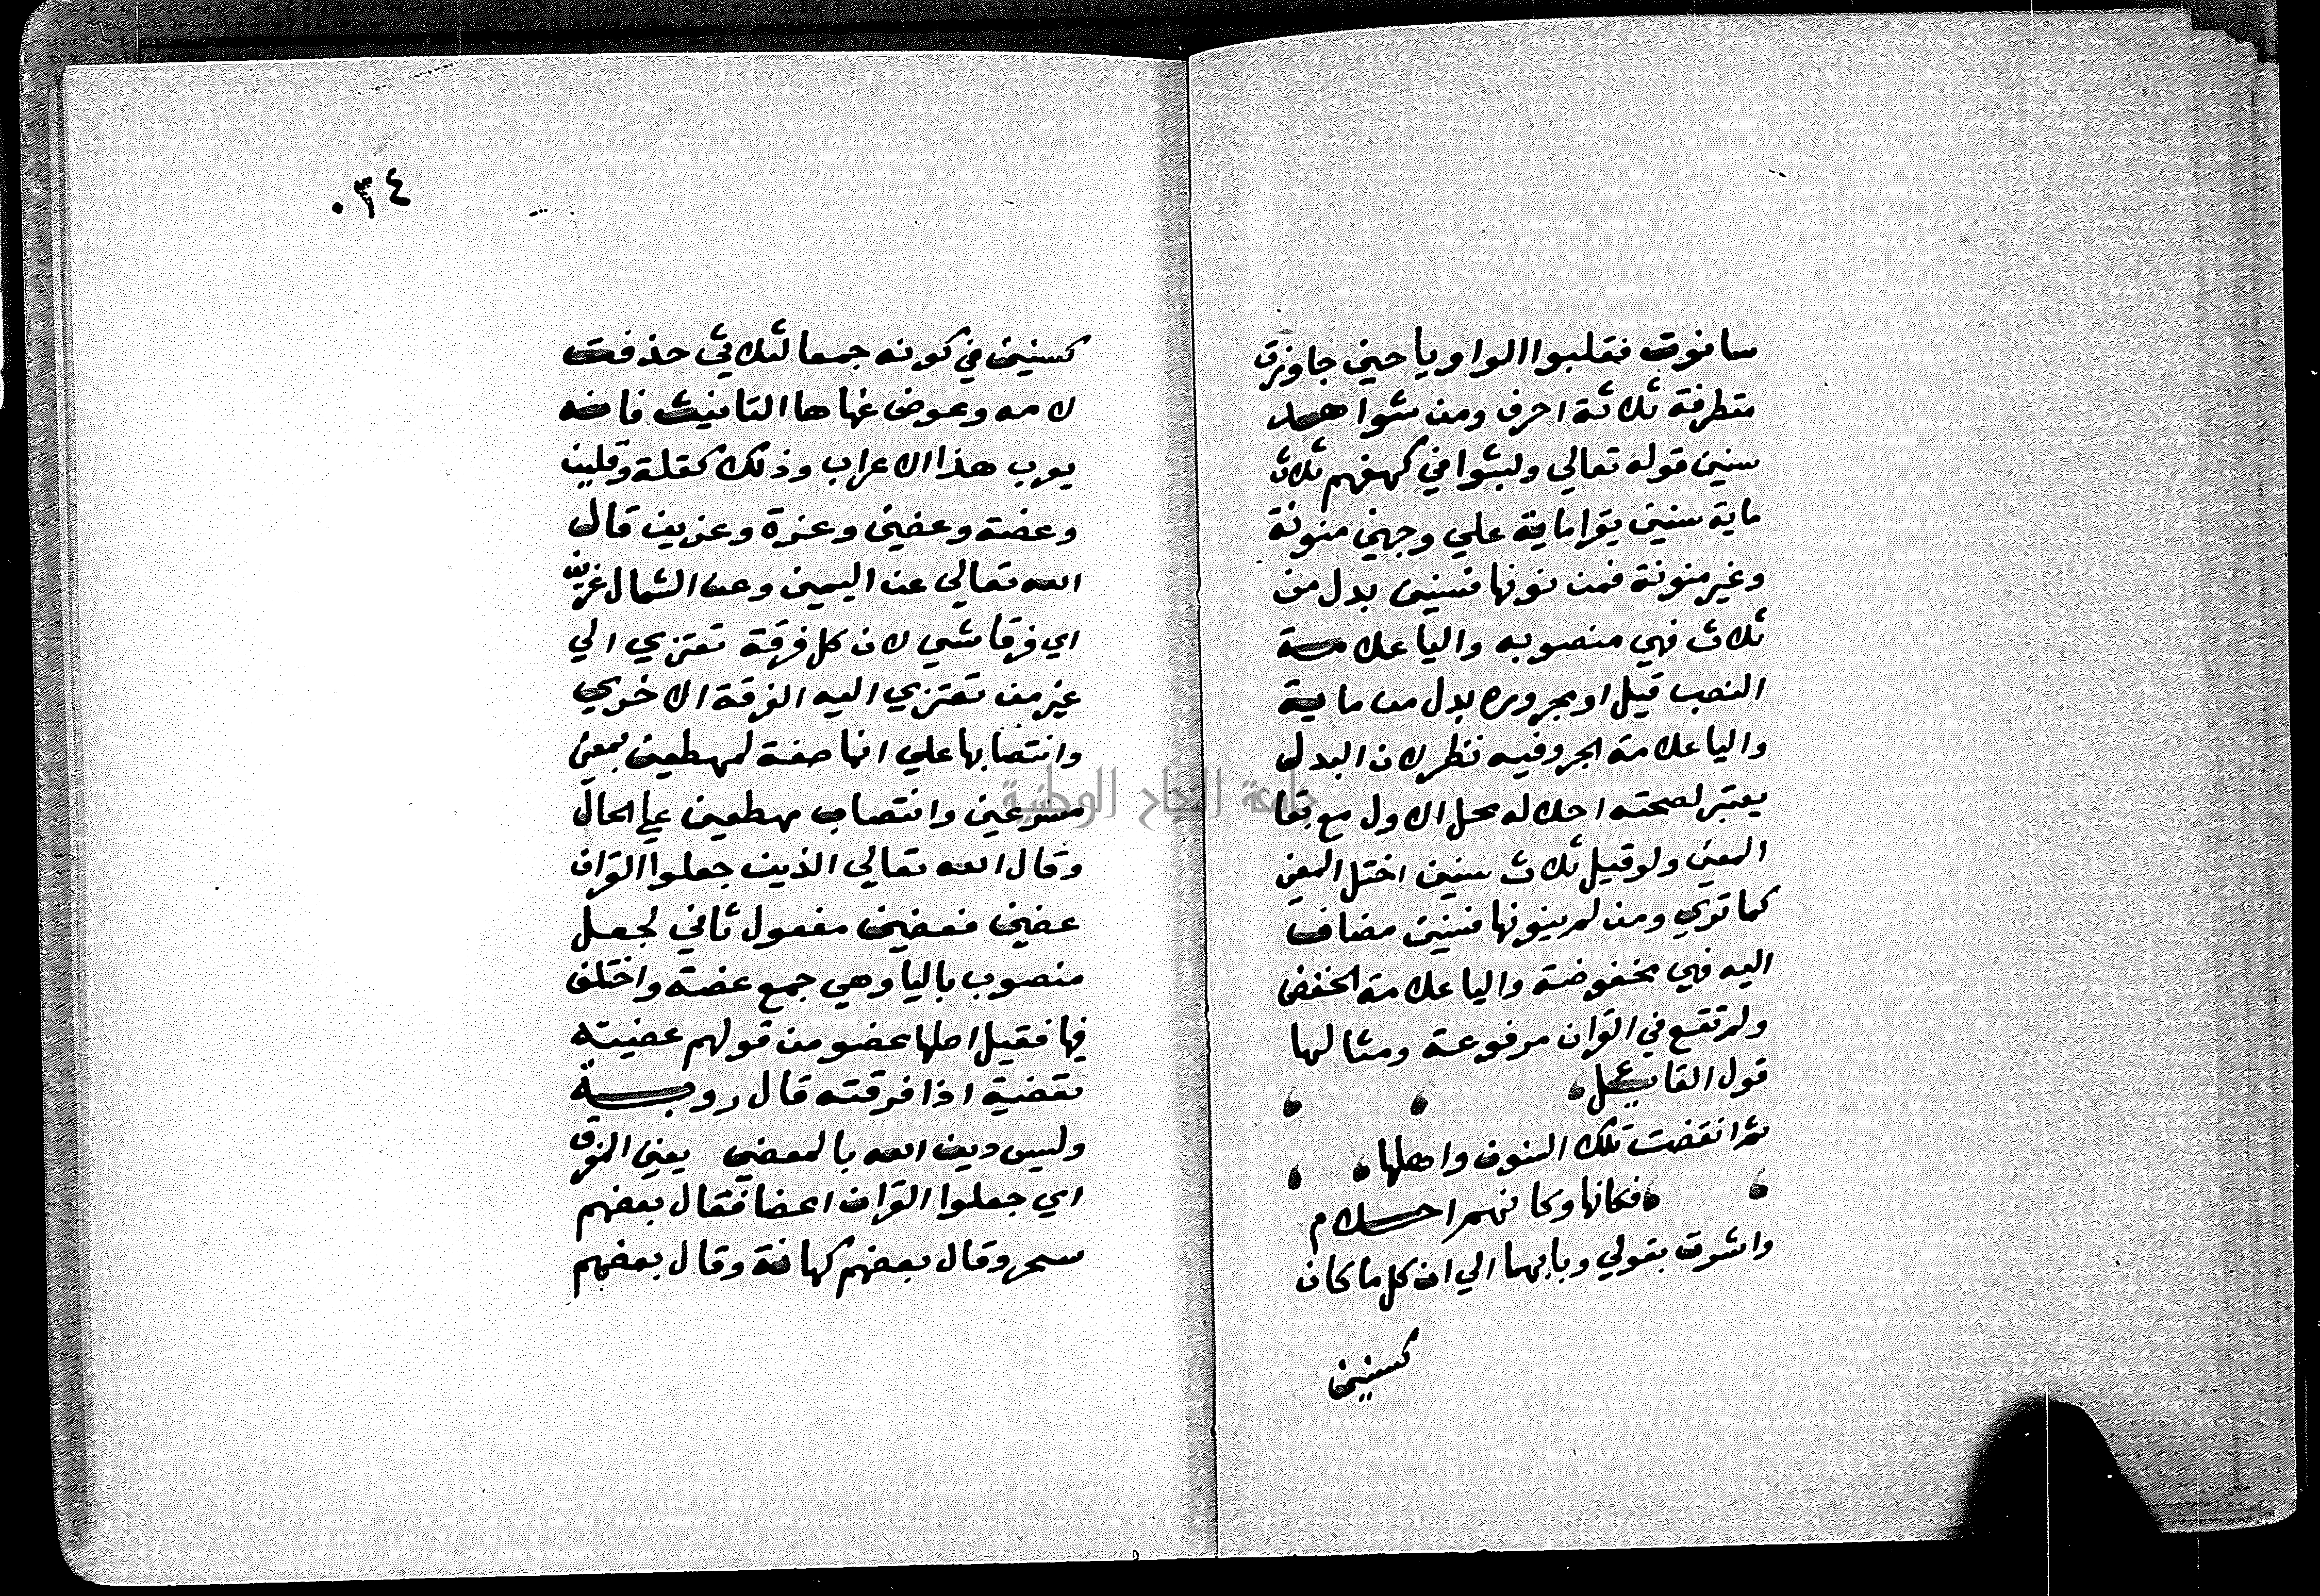 سانوت فقلبوا الواو يا حين جاوزت
متطرفة ثلاثة احرف ومن شواهد
سنين قوله تعالي ولبثوا في كهفهم ثلاث
ماية سنين يقرا ماية علي وجهين منونة
وغير منونة فمن نونها فسنين بدل من
ثلاث فهي منصوبه واليا علامة
النصب قيل او مجروره بدل من ماية
واليا علامة الجر وفيه نظر لان البدل
يعتبر لصحته احلاله محل الاول مع بقا
المعني ولو قيل ثلاث سنين اختل المعني
كما تري ومن لم ينونها فسنين مضاف
اليه فهي مخفوضة واليا علامة الخفض
ولم تقع في القران مرفوعة ومثالها
قول القايل
ثم انقضت تلك السنون واهلها
فكانها وكانهم احلام
واشرت بقولي وبابهما الي ان كل ما كان
كسنين
٠٣٤
كسنين في كونه جمعا لثلاثي حذفت
لامه وعوض عنها ها التانيث فانه
يعرب هذا الاعراب وذلك كقلة وقلين
وعضة وعضين وعزة وعزين قال
الله تعالي عن اليمين وعن الشمال عزين
اي فرقا شتي لان كل فرقة تعتزي الي
غير من تعتزي اليه الفرقة الاخري
وانتصابها علي انها صفة لمهطعين بمعني
مسرعين وانتصاب مهطعين علي الحال
وقال الله تعالي الذين جعلوا القران
عضين فعضين مفعول ثاني لجعل
منصوب باليا وهي جمع عضة واختلف
فيها فقيل اصلها عضو من قولهم عضيته
تعضية اذا فرقته قال روبة
وليس دين الله بالمعضي يعني المفرق
اي جعلوا القران اعضا فقال بعضهم
سحر وقال بعضهم كهانة وقال بعضهم
جامعة النجاح الوطنية